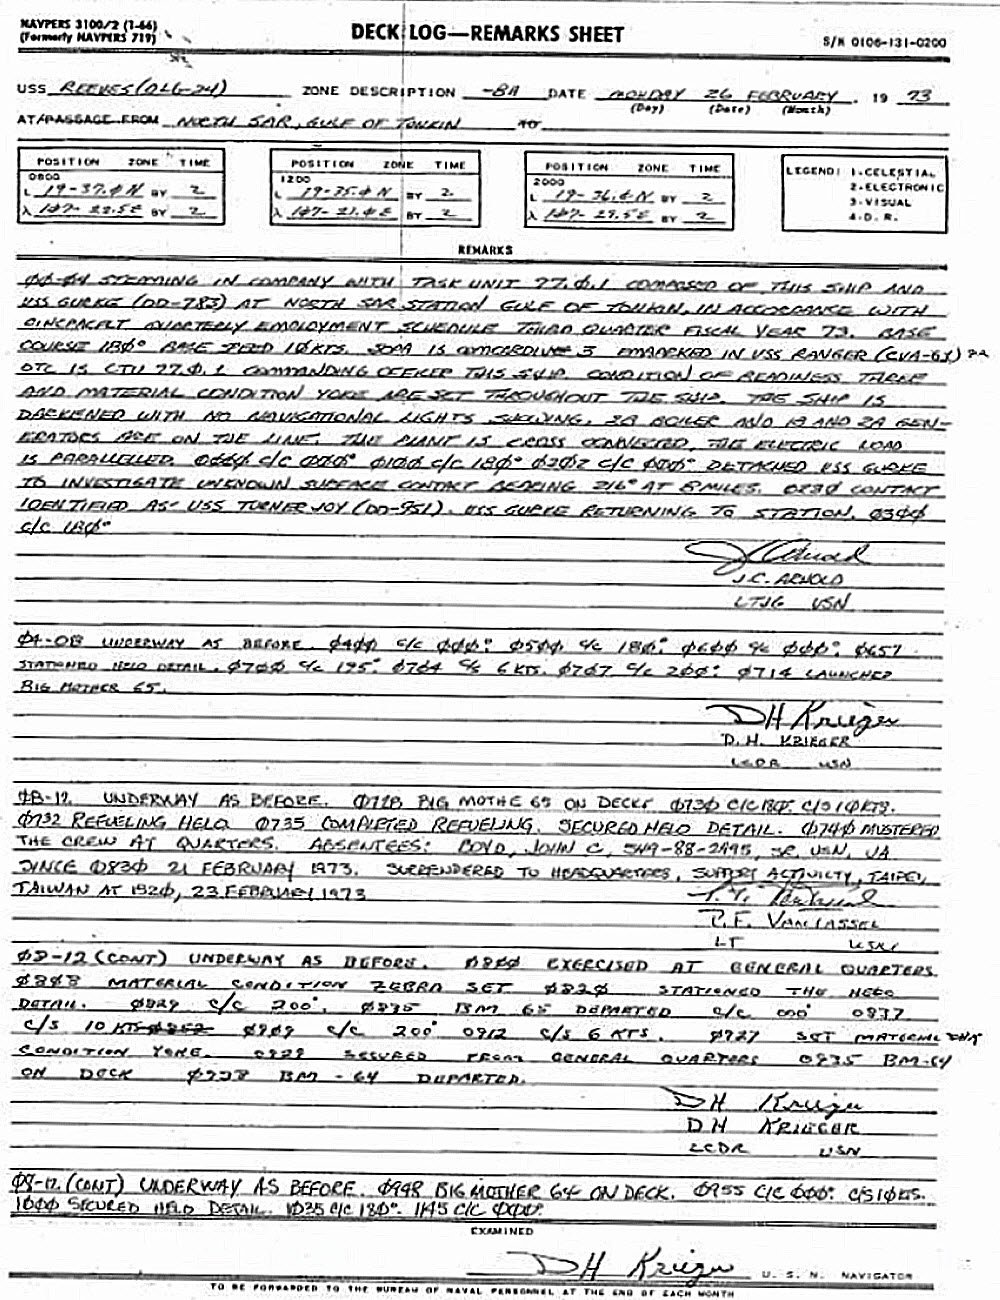 NAVPERS 3100/2 (1-66)
(Formerly NAVPERS 719)
DECK LOG—REMARKS SHEET
S/N 0106-131-0200
USS REEVES (DLG-24) ZONE DESCRIPTION -8H DATE MONDAY 26 FEBRUARY, 19 73
(Day) (Date) (Month)
AT/PASSAGE FROM NORTH SAR, GULF OF TONKIN TO
POSITION ZONE TIME
0800
L 19-37.0 N BY 2
λ 107-22.5E BY 2
POSITION ZONE TIME
1200
L 19-35.0 N BY 2
λ 107-21.0 E BY 2
POSITION ZONE TIME
2000
L 19-36.6 N BY 2
λ 107-27.5E BY 2
LEGEND: 1-CELESTIAL
2-ELECTRONIC
3-VISUAL
4-D. R.
REMARKS
00-04 STEAMING IN COMPANY WITH TASK UNIT 77.0.1 COMPOSED OF THIS SHIP AND
USS GURKE (DD-783) AT NORTH SAR STATION GULF OF TONKIN, IN ACCORDANCE WITH
CINCPACFLT QUARTERLY EMPLOYMENT SCHEDULE THIRD QUARTER FISCAL YEAR 73. BASE
COURSE 180° BASE SPEED 10 KTS. SOPA IS COMCARDIV 3 EMBARKED IN USS RANGER (CVA-61)
OTC IS CTU 77.0.1 COMMANDING OFFICER THIS SHIP. CONDITION OF READINESS THREE
AND MATERIAL CONDITION YOKE ARE SET THROUGHOUT THE SHIP. THE SHIP IS
DARKENED WITH NO NAVIGATIONAL LIGHTS SHOWING. 2B BOILER AND 1B AND 2A GEN-
ERATORS ARE ON THE LINE. THE PLANT IS CROSS CONNECTED, THE ELECTRIC LOAD
IS PARALLELLED. C/C 000° 0100 C/C 180° 0202 C/C 000° DETACHED USS GURKE
TO INVESTIGATE UNKNOWN SURFACE CONTACT BEARING 216° AT 8 MILES. 0230 CONTACT
IDENTIFIED AS USS TURNER JOY (DD-951). USS GURKE RETURNING TO STATION. 0300
C/C 180°
J.C. ARNOLD
LTJG USN
04-08 UNDERWAY AS BEFORE. 0400 C/C 000° 0500 C/C 180° 0600 C/C 000° 0657
STATIONED HELO DETAIL. 0700 C/C 175° 0704 C/S 6 KTS. 0707 C/C 200° 0714 LAUNCHED
BIG MOTHER 65.
DH Krieger
D. H. KRIEGER
LCDR USN
08-12. UNDERWAY AS BEFORE. 0728 BIG MOTHE 65 ON DECK. 0730 C/C 180°. C/S 10 KTS.
0732 REFUELING HELO. 0735 COMPLETED REFUELING. SECURED HELO DETAIL. 0740 MUSTERED
THE CREW AT QUARTERS. ABSENTEES: BOYD, JOHN C, 549-88-2495, SR, USN, UA
SINCE 0830 21 FEBRUARY 1973. SURRENDERED TO HEADQUARTERS, SUPPORT ACTIVILTY, TAIPEI,
TAIWAN AT 1520, 23 FEBRUARY 1973
VANTASSEL
LT USN
08-12 (CONT) UNDERWAY AS BEFORE. 0800 EXERCISED AT GENERAL QUARTERS.
0808 MATERIAL CONDITION ZEBRA SET 0820 STATIONED THE HELO
DETAIL. 0829 C/C 200°. 0835 BM 65 DEPARTED C/C 000° 0837
C/S 10 KTS 0909 C/C 200° 0912 C/S 6 KTS. 0927 SET MATERIAL
CONDITION YOKE. 0928 SECURED FROM GENERAL QUARTERS 0935 BM-64
ON DECK 0938 BM-64 DEPARTED.
DH Krieger
D H KRIEGER
LCDR USN
08-12. (CONT) UNDERWAY AS BEFORE. 0948 BIG MOTHER 64 ON DECK. 0955 C/C 000° C/S 10 KTS.
1000 SECURED HELO DETAIL. 1035 C/C 180°. 1145 C/C 000°.
EXAMINED
DH Krieger U. S. N. NAVIGATOR
TO BE FORWARDED TO THE BUREAU OF NAVAL PERSONNEL AT THE END OF EACH MONTH